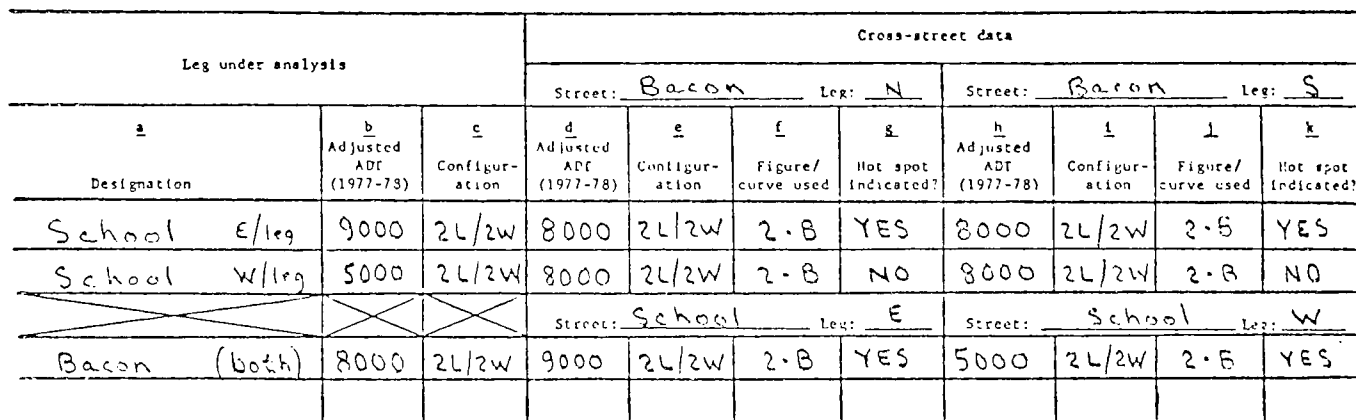 Leg under analysis
Cross-street data
Street: Bacon Leg: N Street: Bacon Leg: S
a b c d e f g h i j k
Designation Adjusted ADT (1977-73) Configur-ation Adjusted ADT (1977-78) Configur-ation Figure/curve used Hot spot indicated? Adjusted ADT (1977-78) Configur-ation Figure/curve used Hot spot indicated?
School E/leg 9000 2L/2W 8000 2L/2W 2-B YES 8000 2L/2W 2-B YES
School W/leg 5000 2L/2W 8000 2L/2W 2-B NO 8000 2L/2W 2-B NO
Street: School Leg: E Street: School Leg: W
Bacon (both) 8000 2L/2W 9000 2L/2W 2-B YES 5000 2L/2W 2-B YES